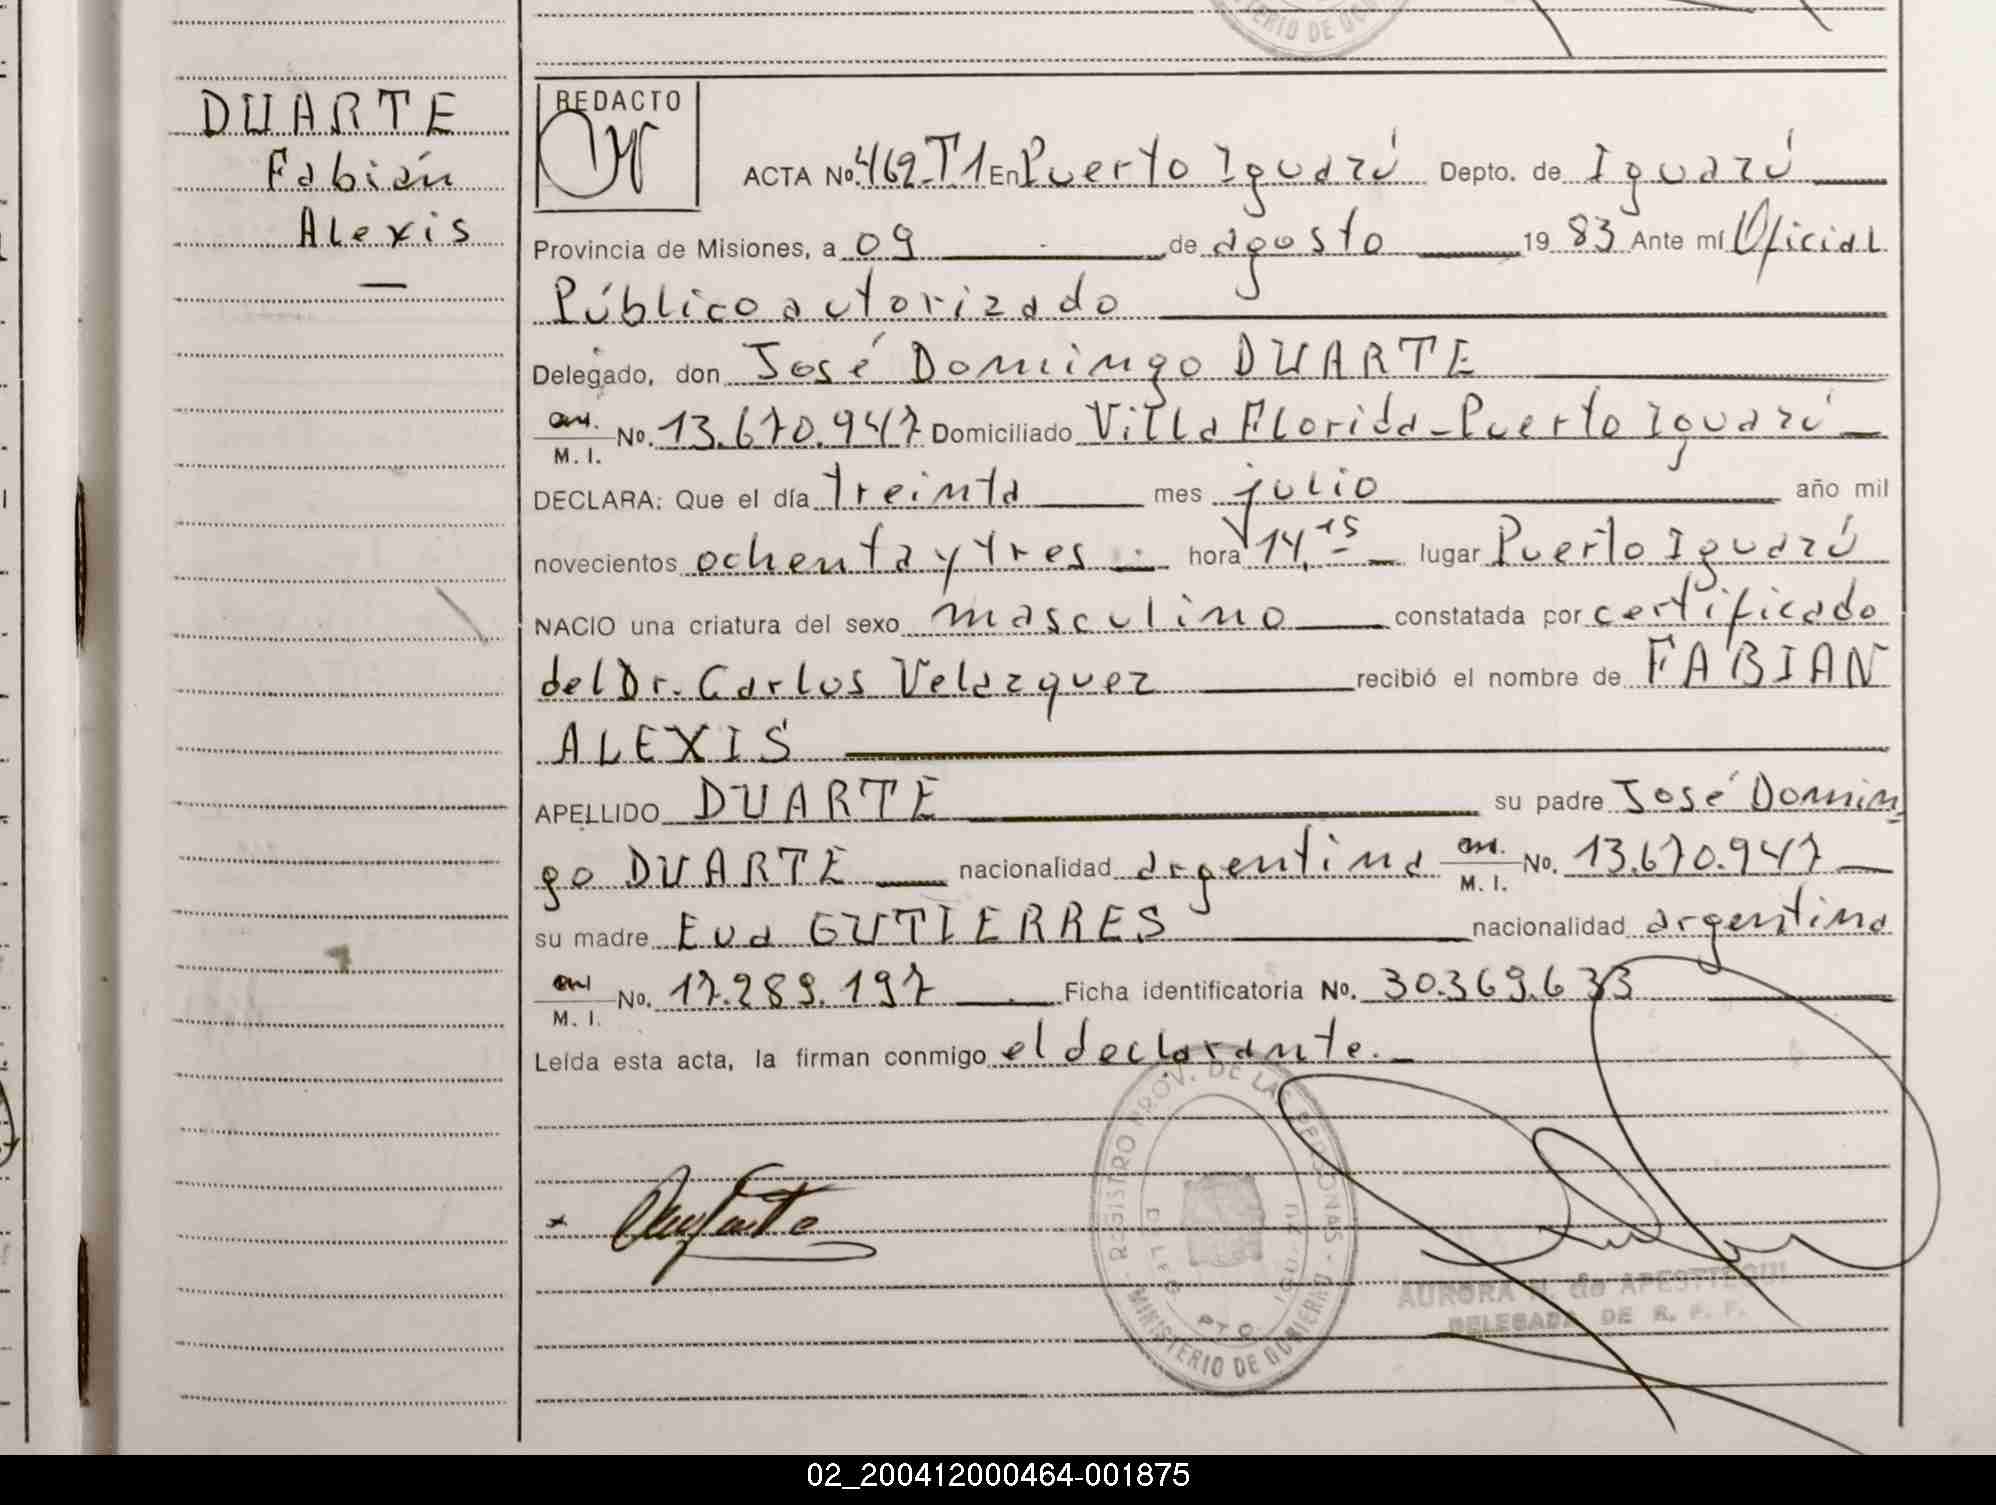 DUARTE
Fabián
Alexis
—
REDACTO
ACTA No. 462-T1 En Puerto Iguazú Depto. de Iguazú
Provincia de Misiones, a 09 de agosto 1983 Ante mí Oficial
Público autorizado
Delegado, don José Domingo DUARTE
M. I. No. 13.670.947 Domiciliado Villa Florida - Puerto Iguazú
DECLARA: Que el día treinta mes julio año mil
novecientos ochenta y tres hora 14,15 lugar Puerto Iguazú
NACIO una criatura del sexo masculino constatada por certificado
del Dr. Carlos Velazquez recibió el nombre de FABIAN
ALEXIS
APELLIDO DUARTE su padre José Domin
go DUARTE nacionalidad argentina M. I. No. 13.670.947
su madre Eva GUTIERRES nacionalidad argentina
M. I. No. 17.289.197 Ficha identificatoria No. 30.369.633
Leída esta acta, la firman conmigo el declarante.
REGISTRO PROV. DE LAS PERSONAS - MINISTERIO DE GOBIERNO
DELEG. PTO. IGUAZU
AURORA de APESTEGUI
DELEGADA DE R. P. P.
02_200412000464-001875